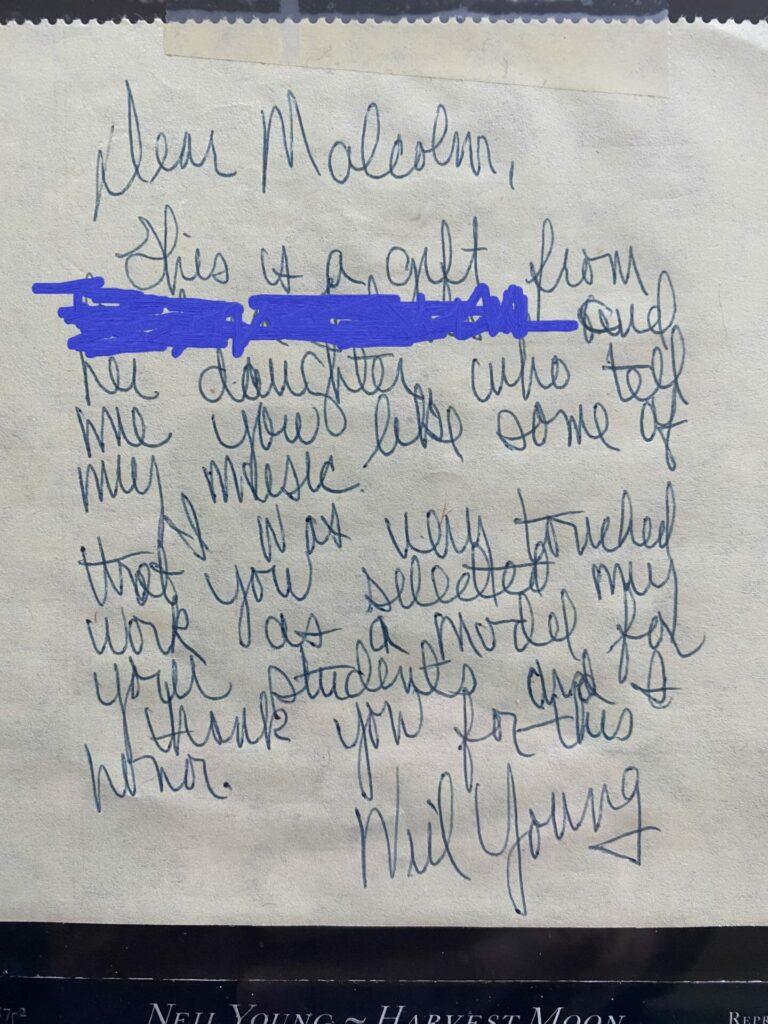 Dear Malcolm,
This is a gift from
and
her daughter, who tell
me you like some of
my music.
I was very touched
that you selected my
work as a model for
your students and I
thank you for this
honor.
Neil Young
NEIL YOUNG ~ HARVEST MOON